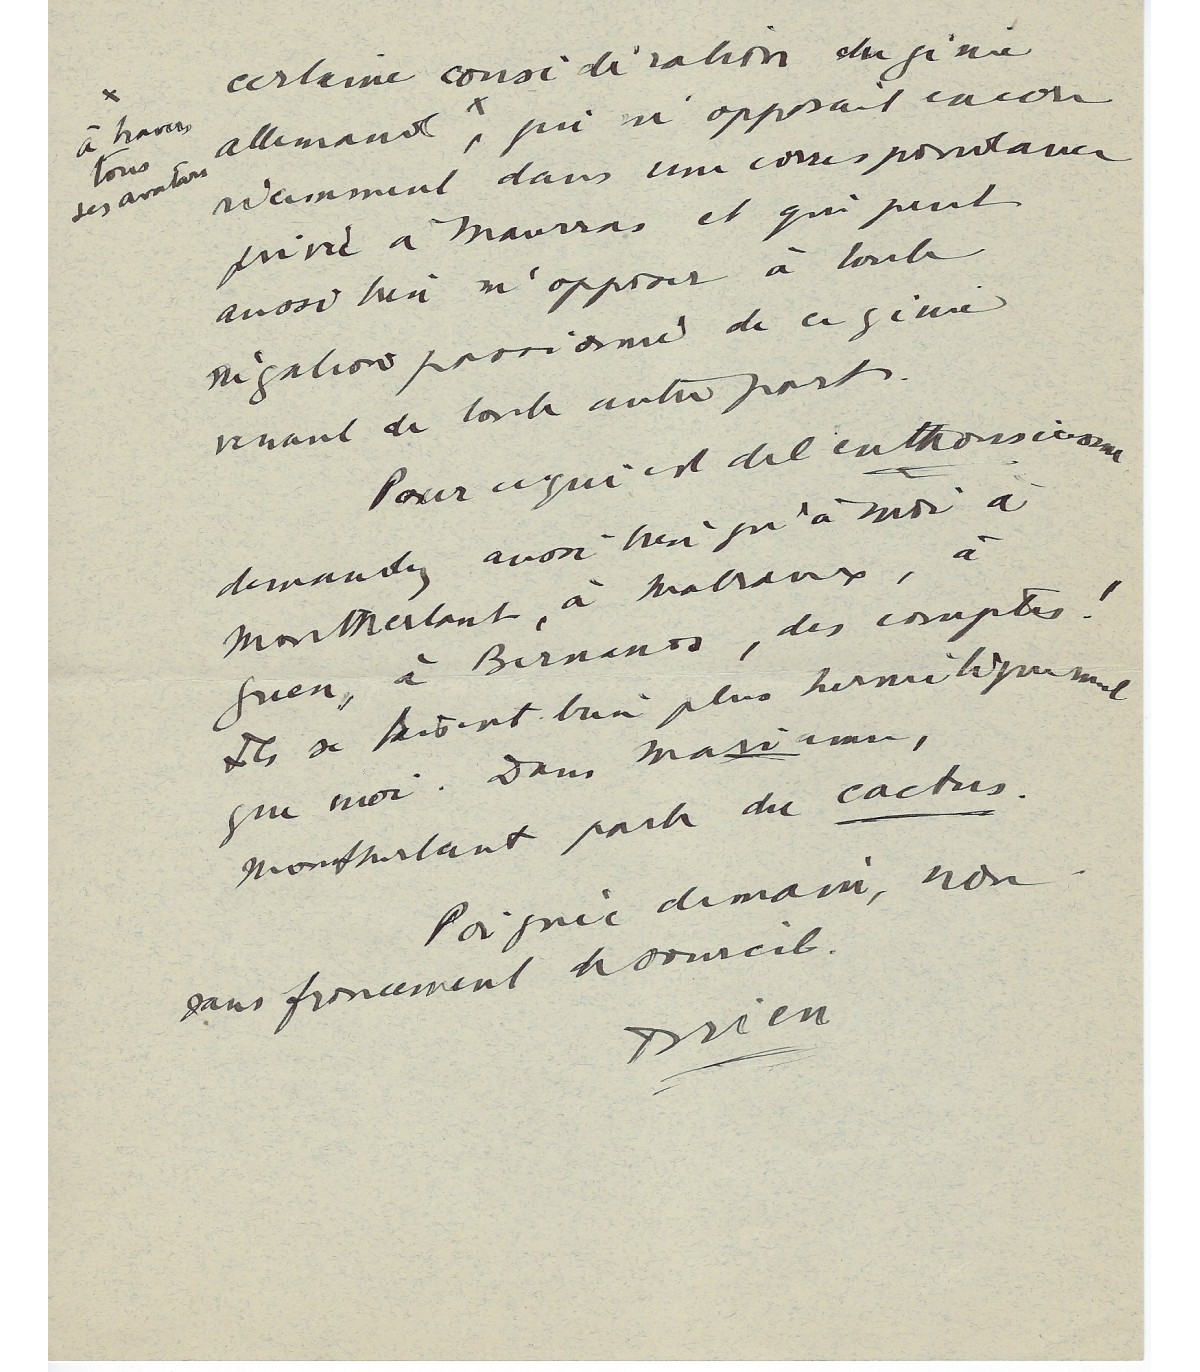 certaine considération du génie
x
à travers
tous
ses avatars
allemand x, qui m'opposait encore
récemment dans une correspondance
privée à Maurras et qui peut
aussi bien m'opposer à toute
négation passionnée de ce génie
venant de toute autre part.
Pour ce qui est de l'enthousiasme
demandez aussi bien qu'à moi à
Montherlant, à Malraux, à
Green, à Bernanos, des comptes!
Ils se taisent bien plus hermétiquement
que moi. Dans Marianne,
Montherlant parle du cactus.
Poignée de main, non
sans froncement de sourcil.
Drieu